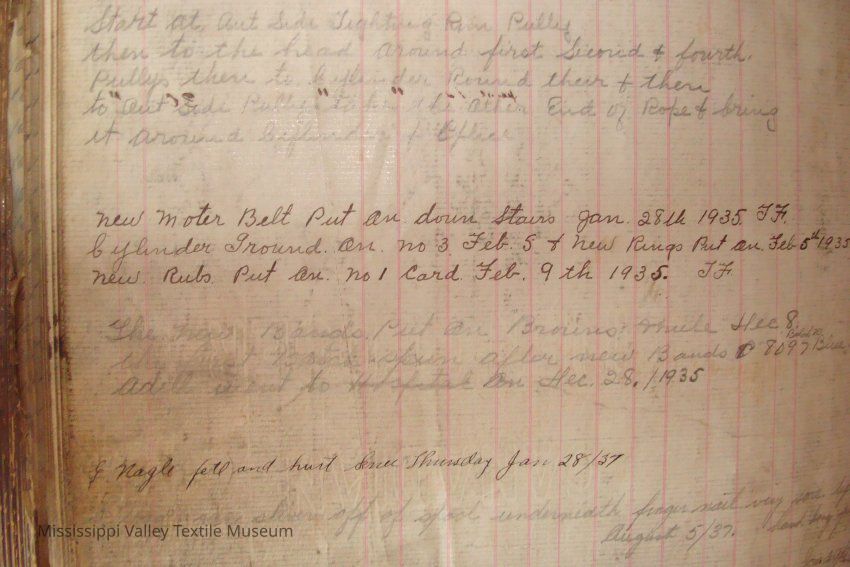 Start at Out Side Tightning Rim Pully
then to the head around first Second & fourth.
Pullys then to Cylinder Round their & then
to Out Side Pully Take the other End of Rope & bring
it around Cylinder & Splice
new moter Belt Put on down Stairs Jan. 28th 1935. TF.
Cylinder Ground. on. no 3 Feb. 5 & New Rings Put on. Feb 5th 1935
new. Rubs. Put on. no 1 Card. Feb. 9th 1935. TF
The new Bands. Put on Browns. Mule Dec 8.
spun after new Bands 8097
went to Hospital on Dec. 28. / 1935
J Nagle fell and hurt knee Thursday Jan 28/37
off of spool underneath finger nail very sore
August 5/37.
Mississippi Valley Textile Museum